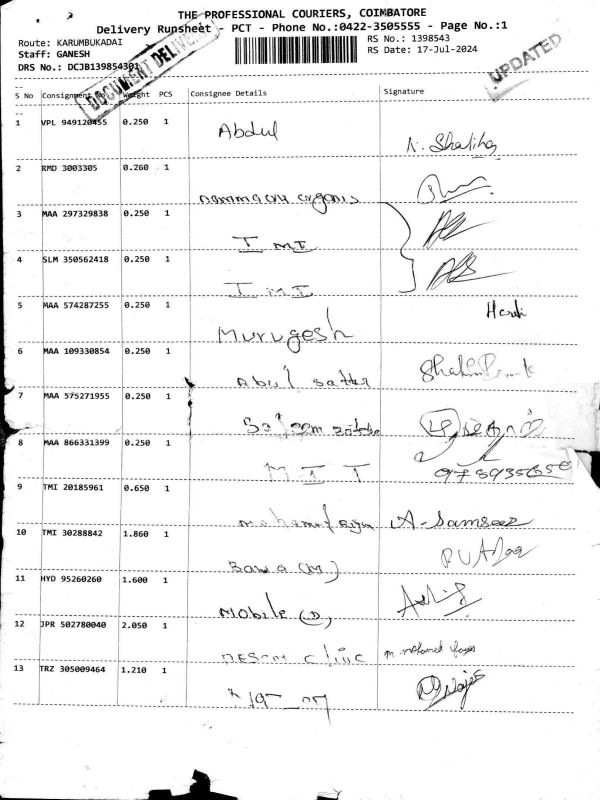 THE PROFESSIONAL COURIERS, COIMBATORE
Delivery Runsheet - PCT - Phone No.:0422-3505555 - Page No.:1
Route: KARUMBUKADAI RS No.: 1398543
Staff: GANESH RS Date: 17-Jul-2024
DRS No.: DCJB139854301
DOCUMENT DELIVERY
UPDATED
S No Consignment No Weight PCS Consignee Details Signature
1 VPL 949120455 0.250 1 Abdul N. Shaliha
2 RMD 3003305 0.260 1
3 MAA 297329838 0.250 1 I M I
4 SLM 350562418 0.250 1 I M I
5 MAA 574287255 0.250 1 Murugesh
6 MAA 109330854 0.250 1 Abul Sattar
7 MAA 575271955 0.250 1
8 MAA 866331399 0.250 1 M I T
9 TMI 20185961 0.650 1 A-Samseer
10 TMI 30288842 1.860 1 Bawa (M)
11 HYD 95260260 1.600 1 Mobile (D)
12 JPR 502780040 2.050 1 clinic
13 TRZ 305009464 1.210 1